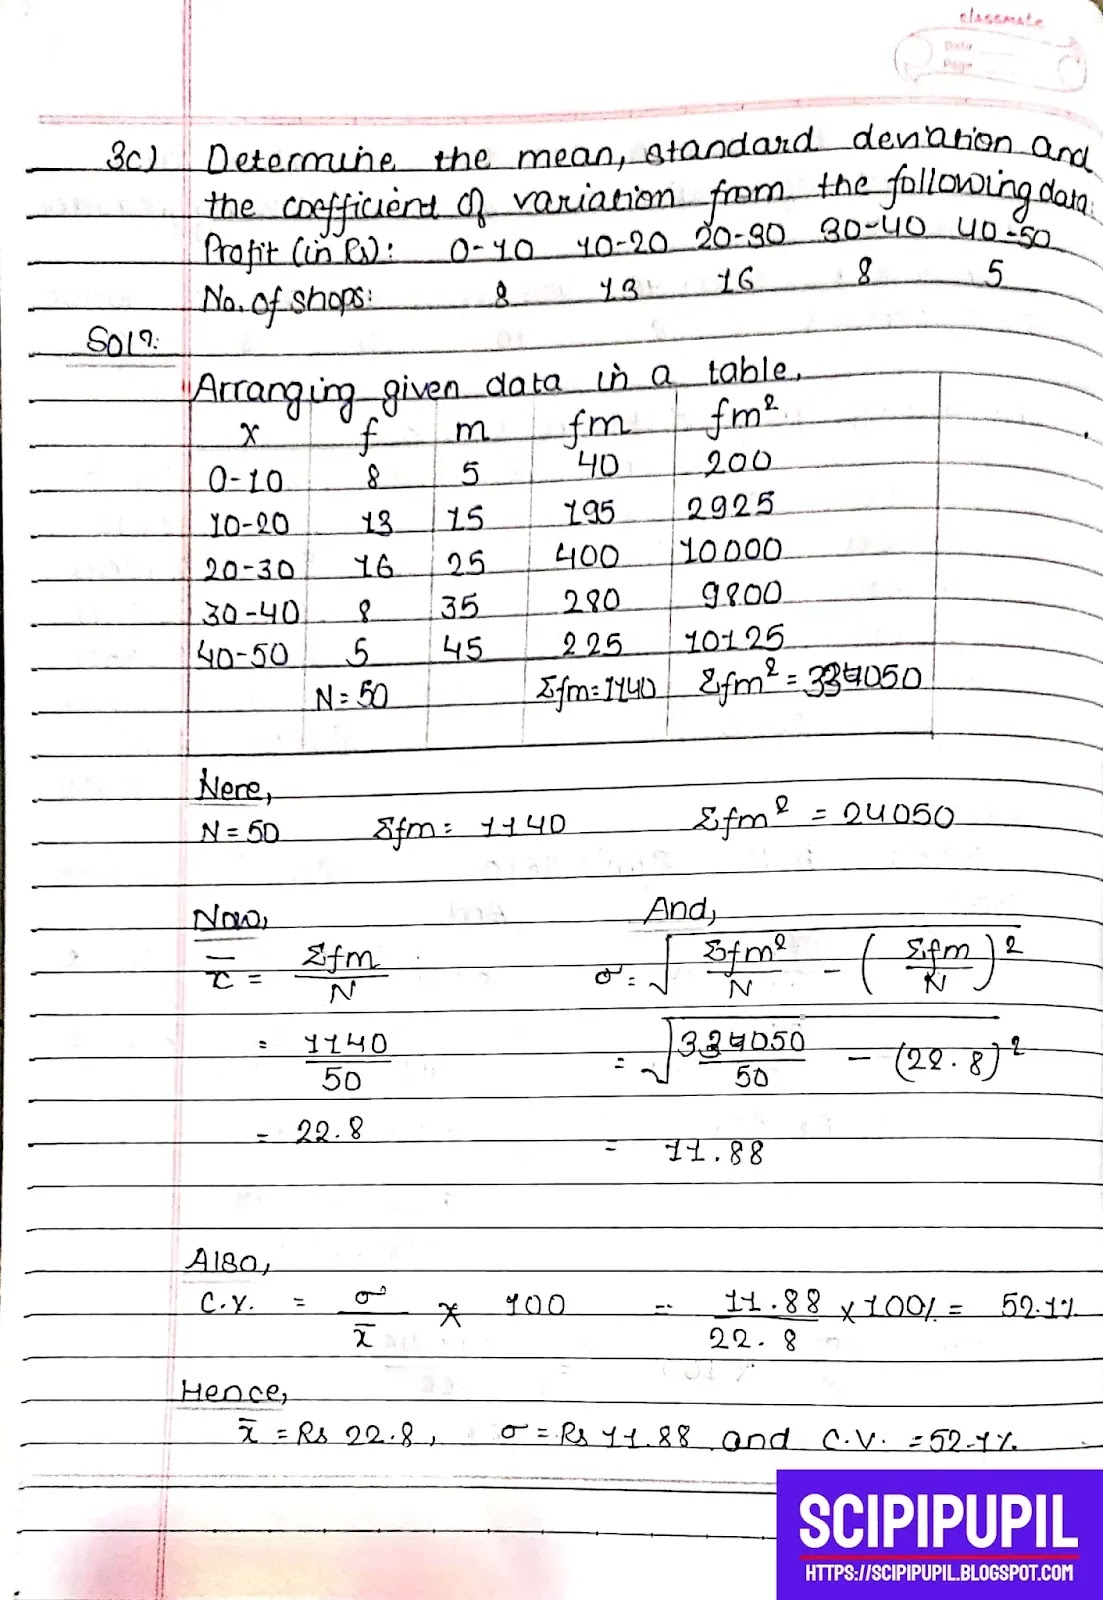 classmate
Date
Page
3c) Determine the mean, standard deviation and
the coefficient of variation from the following data:
Profit (in Rs): 0-10 10-20 20-30 30-40 40-50
No. of shops: 8 13 16 8 5
Solⁿ:
Arranging given data in a table,
x f m fm fm²
0-10 8 5 40 200
10-20 13 15 195 2925
20-30 16 25 400 10000
30-40 8 35 280 9800
40-50 5 45 225 10125
N = 50 Σfm = 1140 Σfm² = 33050
Here,
N = 50 Σfm = 1140 Σfm² = 24050
Now, And,
x̄ = Σfm/N σ = √(Σfm²/N - (Σfm/N)²)
= 1140/50 = √(33050/50 - (22.8)²)
= 22.8 = 11.88
Also,
C.V. = σ/x̄ × 100 = 11.88/22.8 × 100% = 52.1%
Hence,
x̄ = Rs 22.8, σ = Rs 11.88 and C.V. = 52.1%
SCIPIPUPIL
HTTPS://SCIPIPUPIL.BLOGSPOT.COM